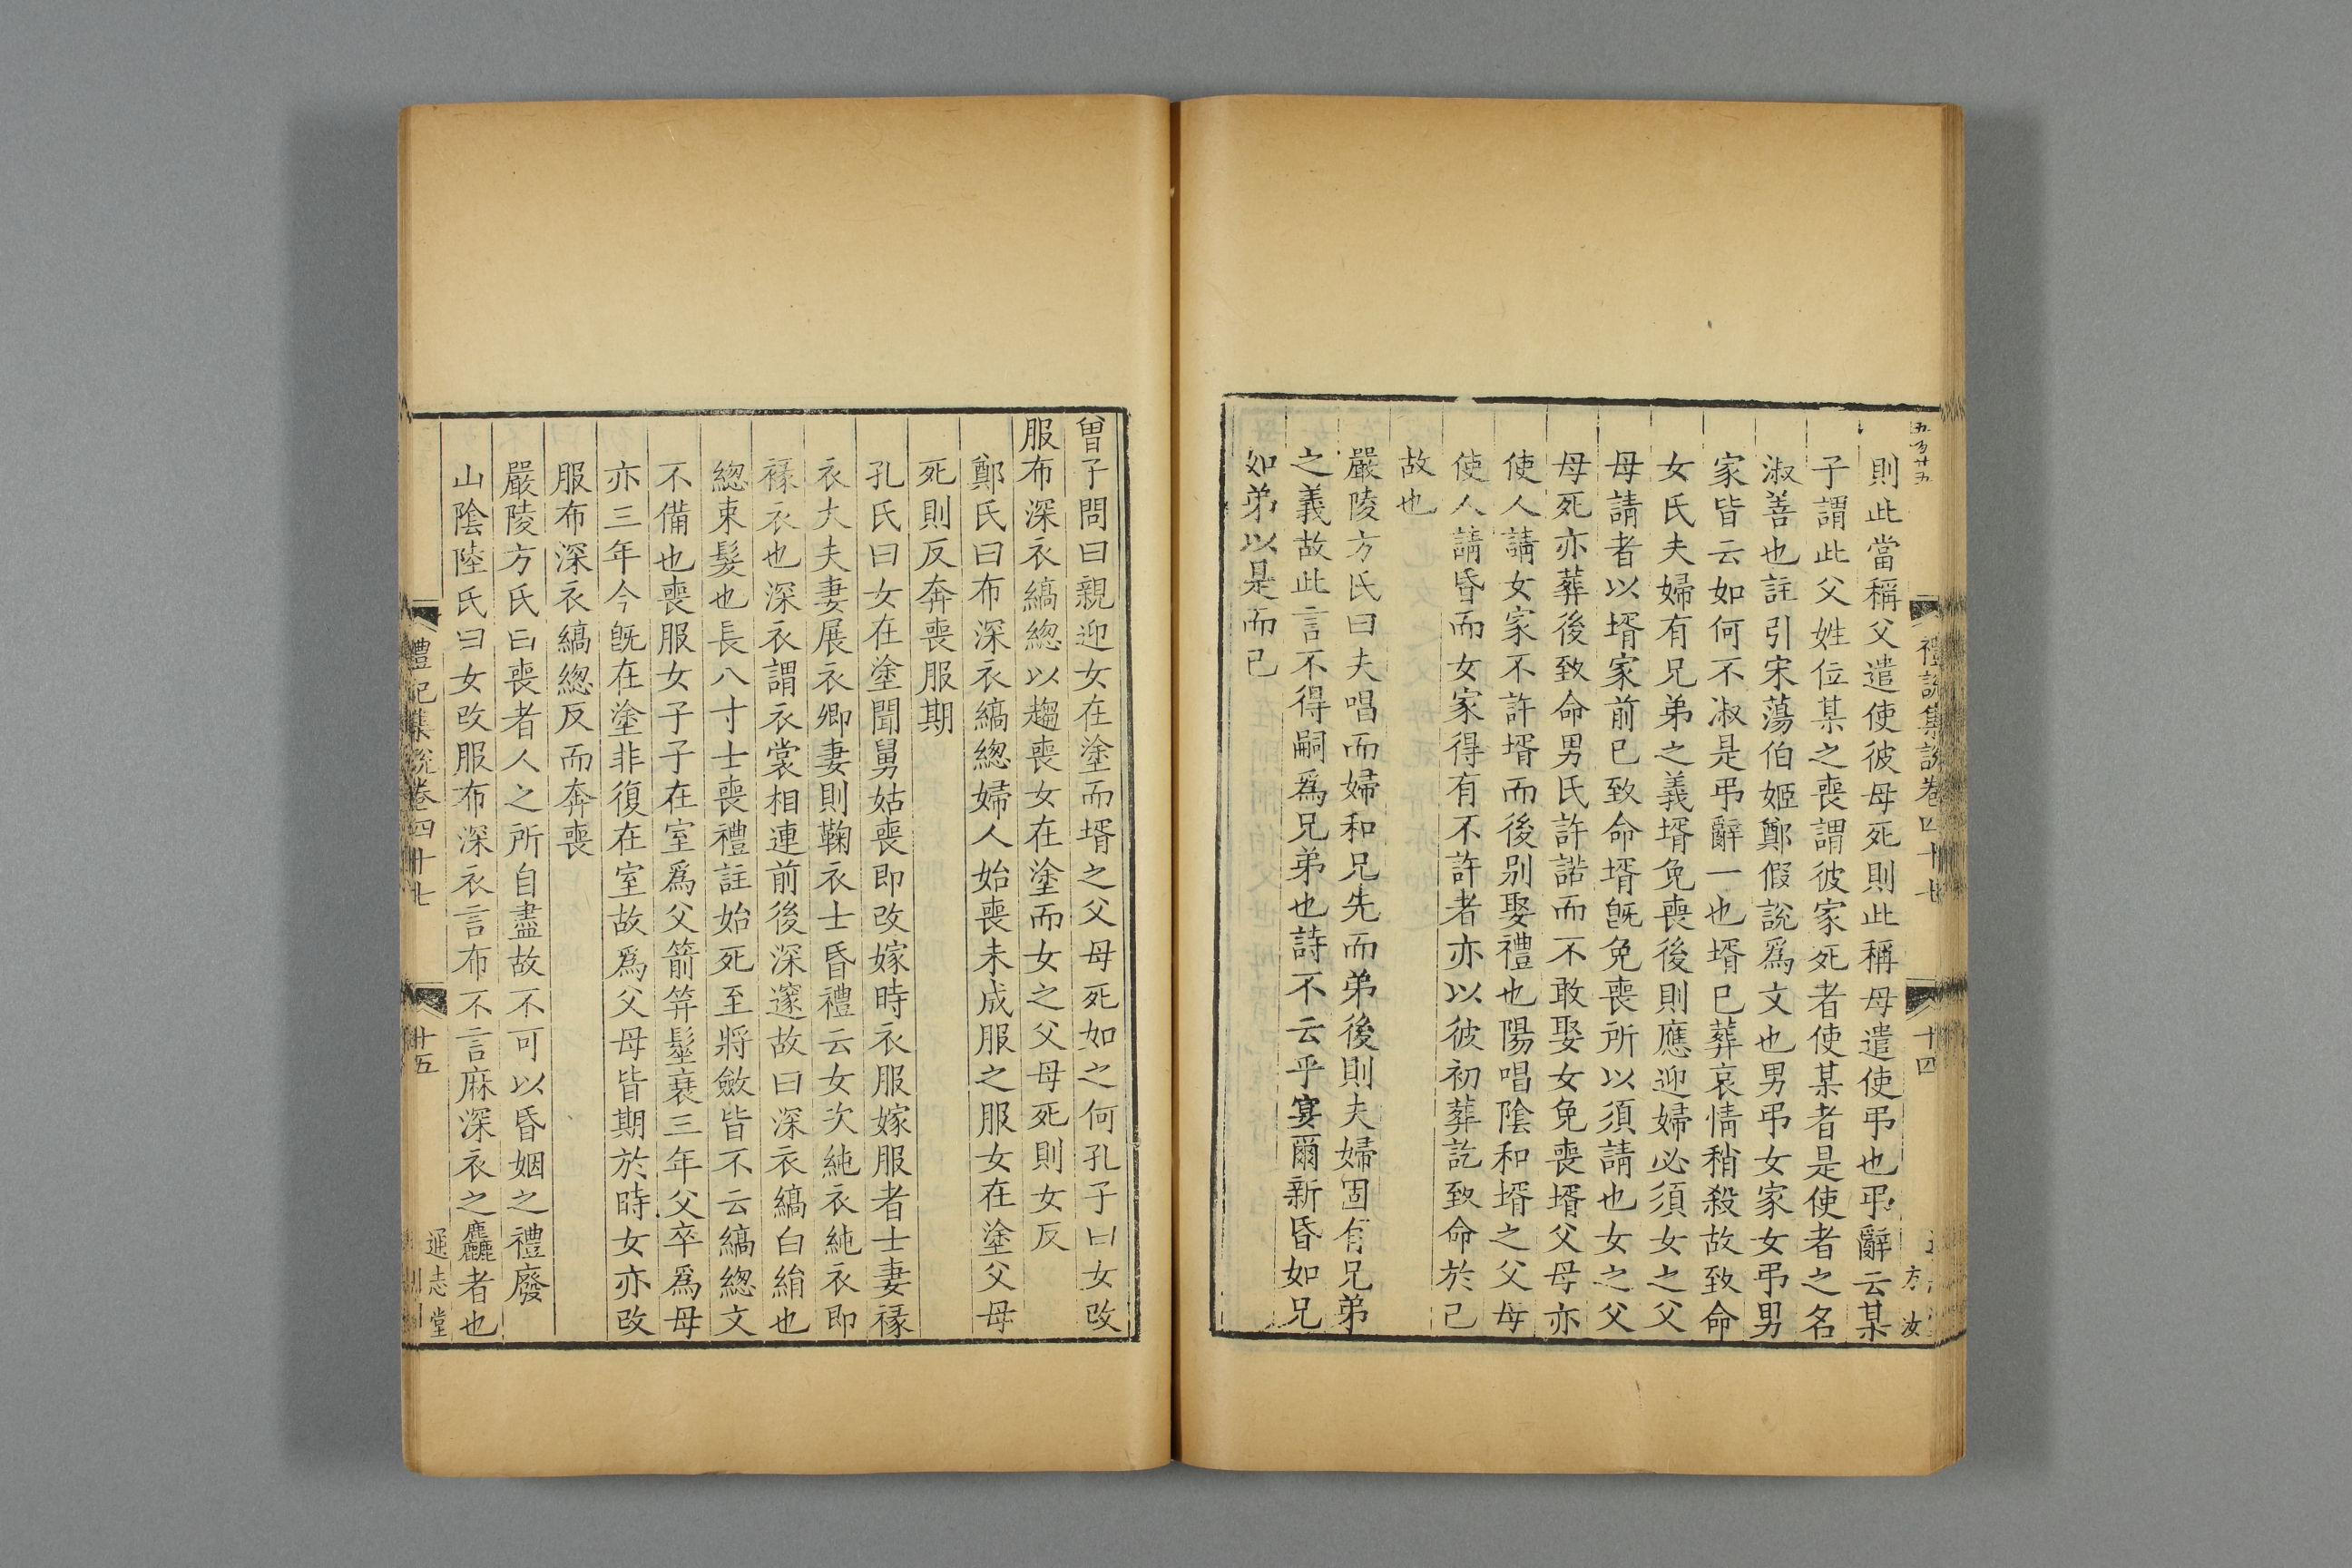 五百廿五
禮記集說卷四十七
十四
方
汝
則此當稱父遣使彼母死則此稱母遣使弔也弔辭云某
子謂此父姓位某之喪謂彼家死者使某者是使者之名
淑善也註引宋蕩伯姬鄭假說爲文也男弔女家女弔男
家皆云如何不淑是弔辭一也壻已葬哀情稍殺故致命
女氏夫婦有兄弟之義壻免喪後則應迎婦必須女之父
母請者以壻家前已致命壻旣免喪所以須請也女之父
母死亦葬後致命男氏許諾而不敢娶女免喪壻父母亦
使人請女家不許壻而後别娶禮也陽唱陰和壻之父母
使人請昏而女家得有不許者亦以彼初葬訖致命於己
故也
嚴陵方氏曰夫唱而婦和兄先而弟後則夫婦固有兄弟
之義故此言不得嗣爲兄弟也詩不云乎宴爾新昏如兄
如弟以是而已
曾子問曰親迎女在塗而壻之父母死如之何孔子曰女改
服布深衣縞總以趨喪女在塗而女之父母死則女反
鄭氏曰布深衣縞總婦人始喪未成服之服女在塗父母
死則反奔喪服期
孔氏曰女在塗聞舅姑喪即改嫁時衣服嫁服者士妻褖
衣大夫妻展衣卿妻則鞠衣士昏禮云女次純衣純衣即
褖衣也深衣謂衣裳相連前後深邃故曰深衣縞白絹也
總束髮也長八寸士喪禮註始死至將斂皆不云縞總文
不備也喪服女子子在室爲父箭笄髽衰三年父卒爲母
亦三年今旣在塗非復在室故爲父母皆期於時女亦改
服布深衣縞總反而奔喪
嚴陵方氏曰喪者人之所自盡故不可以昏姻之禮廢
山陰陸氏曰女改服布深衣言布不言麻深衣之麤者也
禮記集說卷四十七
十五
通志堂